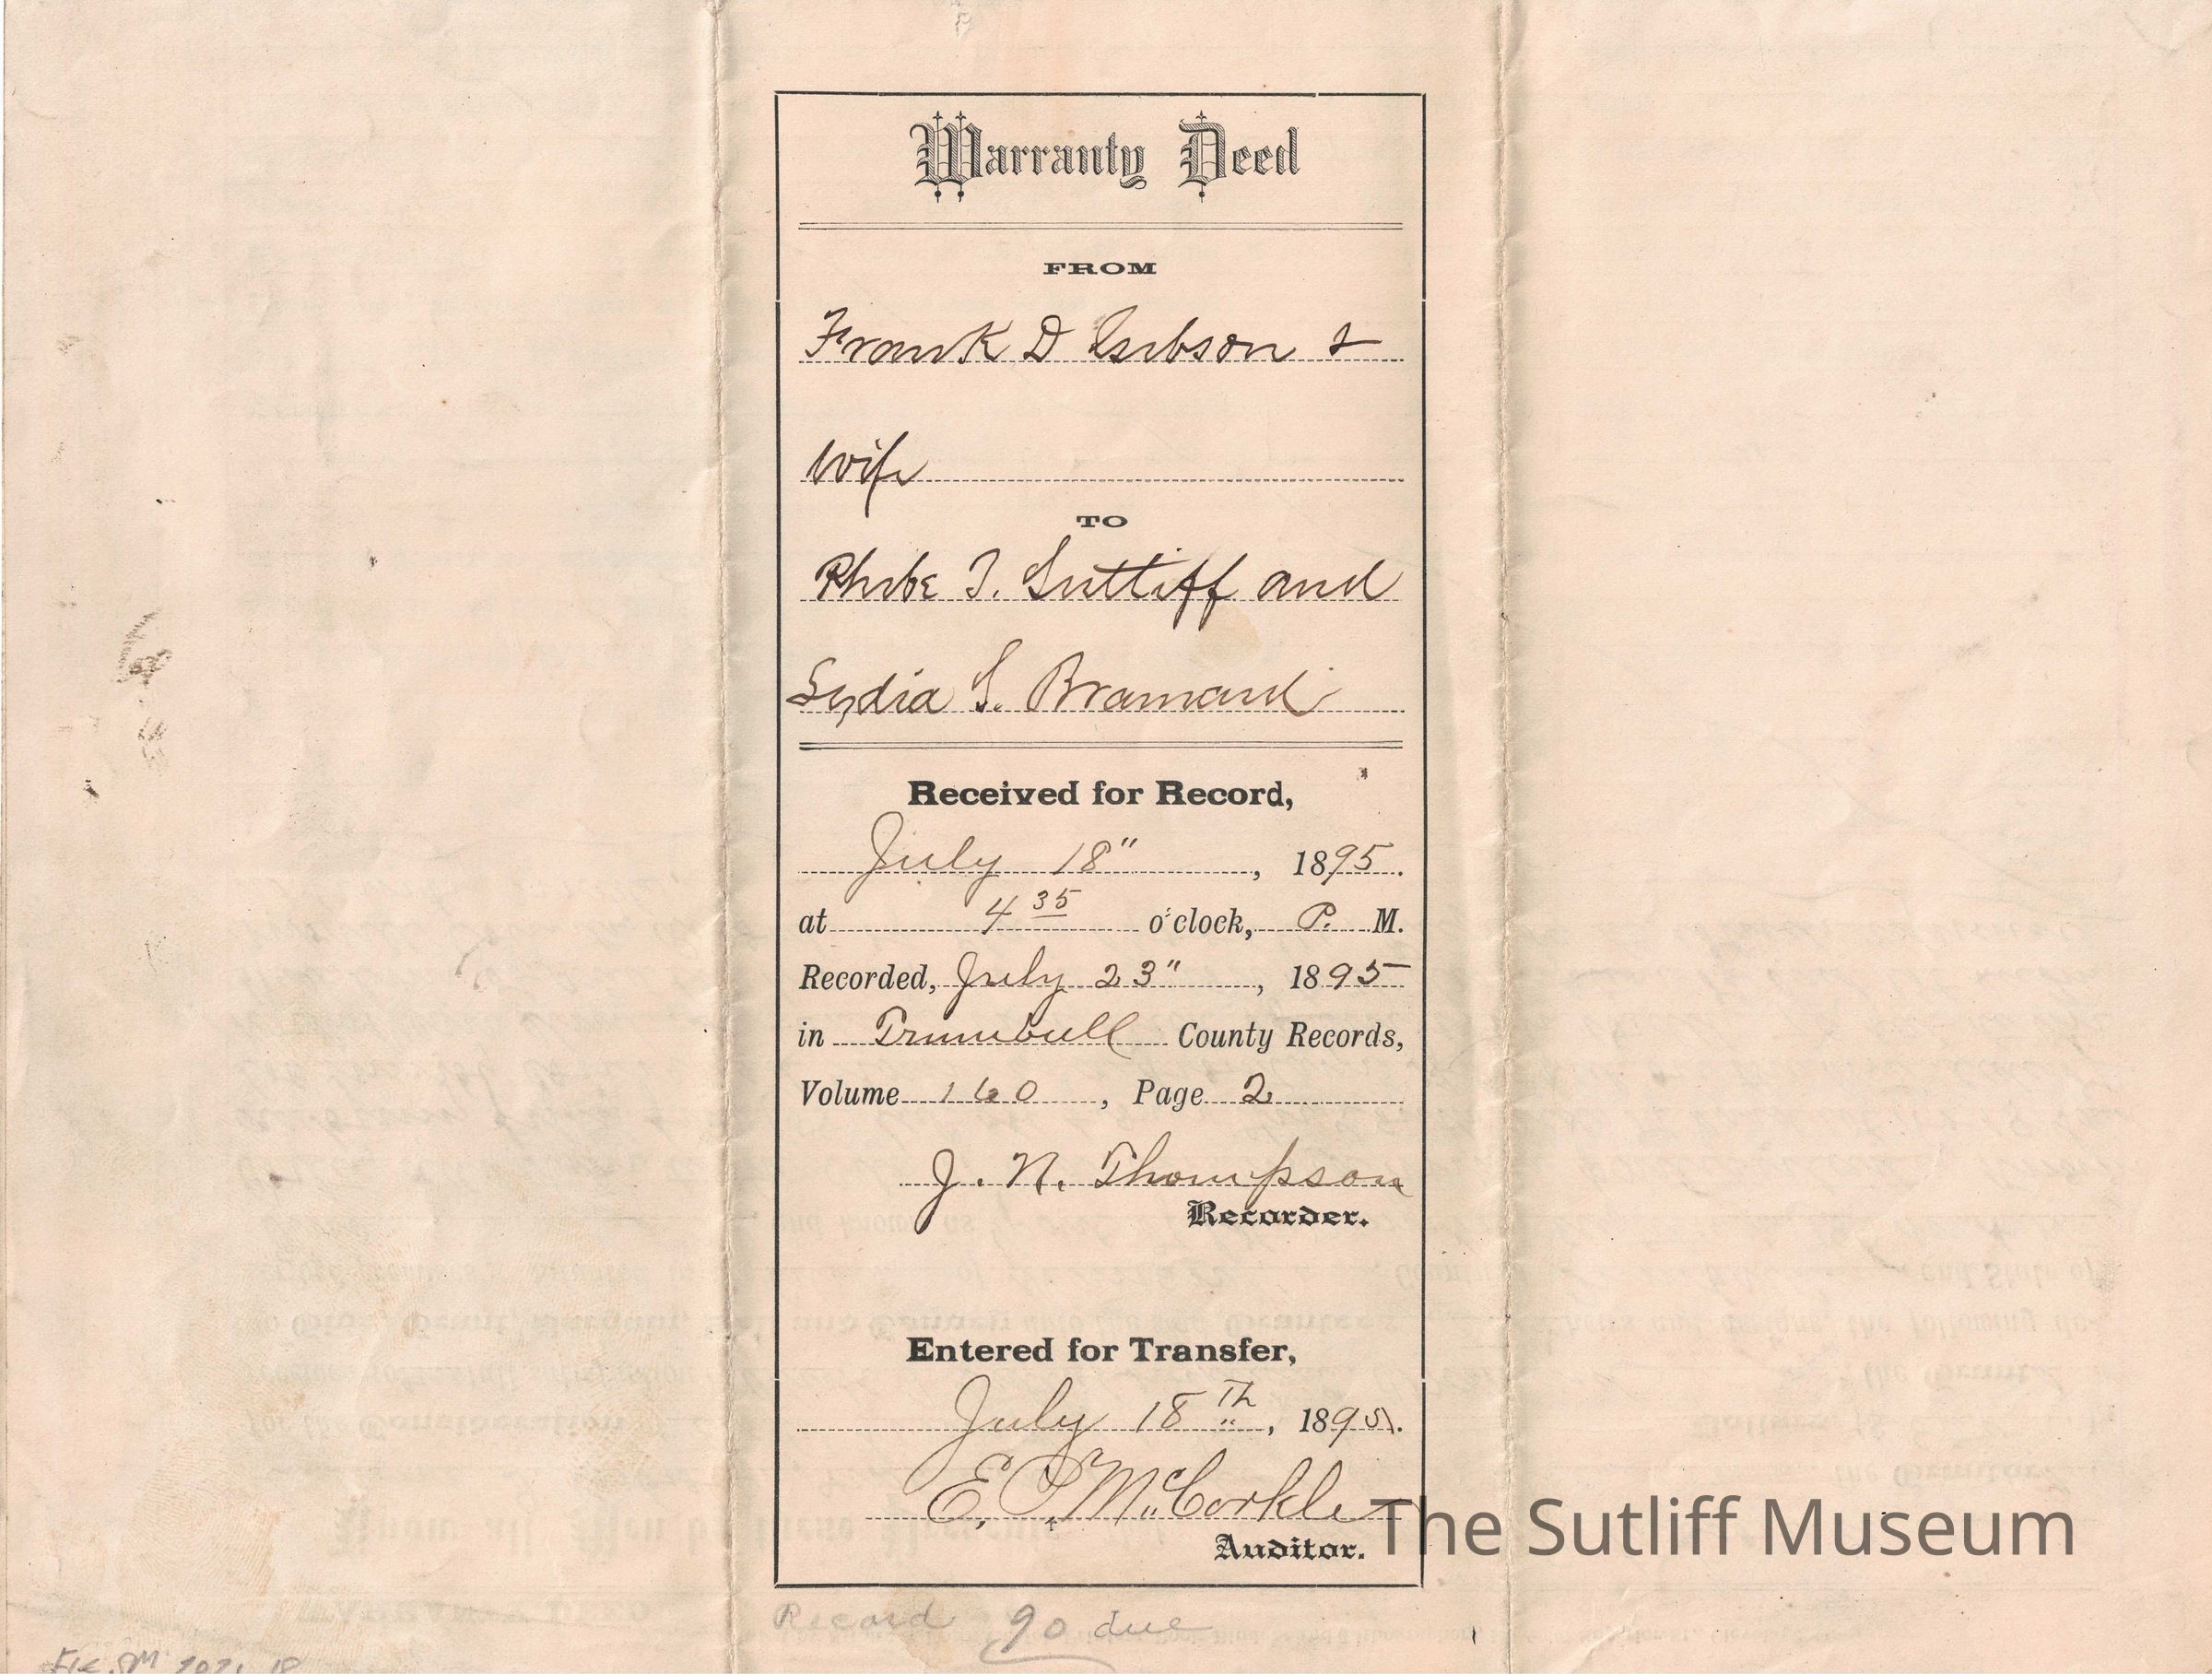 Warranty Deed
FROM
Frank D Gibson &
Wife
TO
Phebe T. Sutliff and
Lydia S. Brainard
Received for Record,
July 18" , 1895.
at 4 35 o'clock, P. M.
Recorded, July 23" , 1895
in Trumbull County Records,
Volume 160 , Page 2
J. N. Thompson
Recorder.
Entered for Transfer,
July 18 Th , 1895.
E. P. McCorkle
Auditor.
The Sutliff Museum
Record 90 due